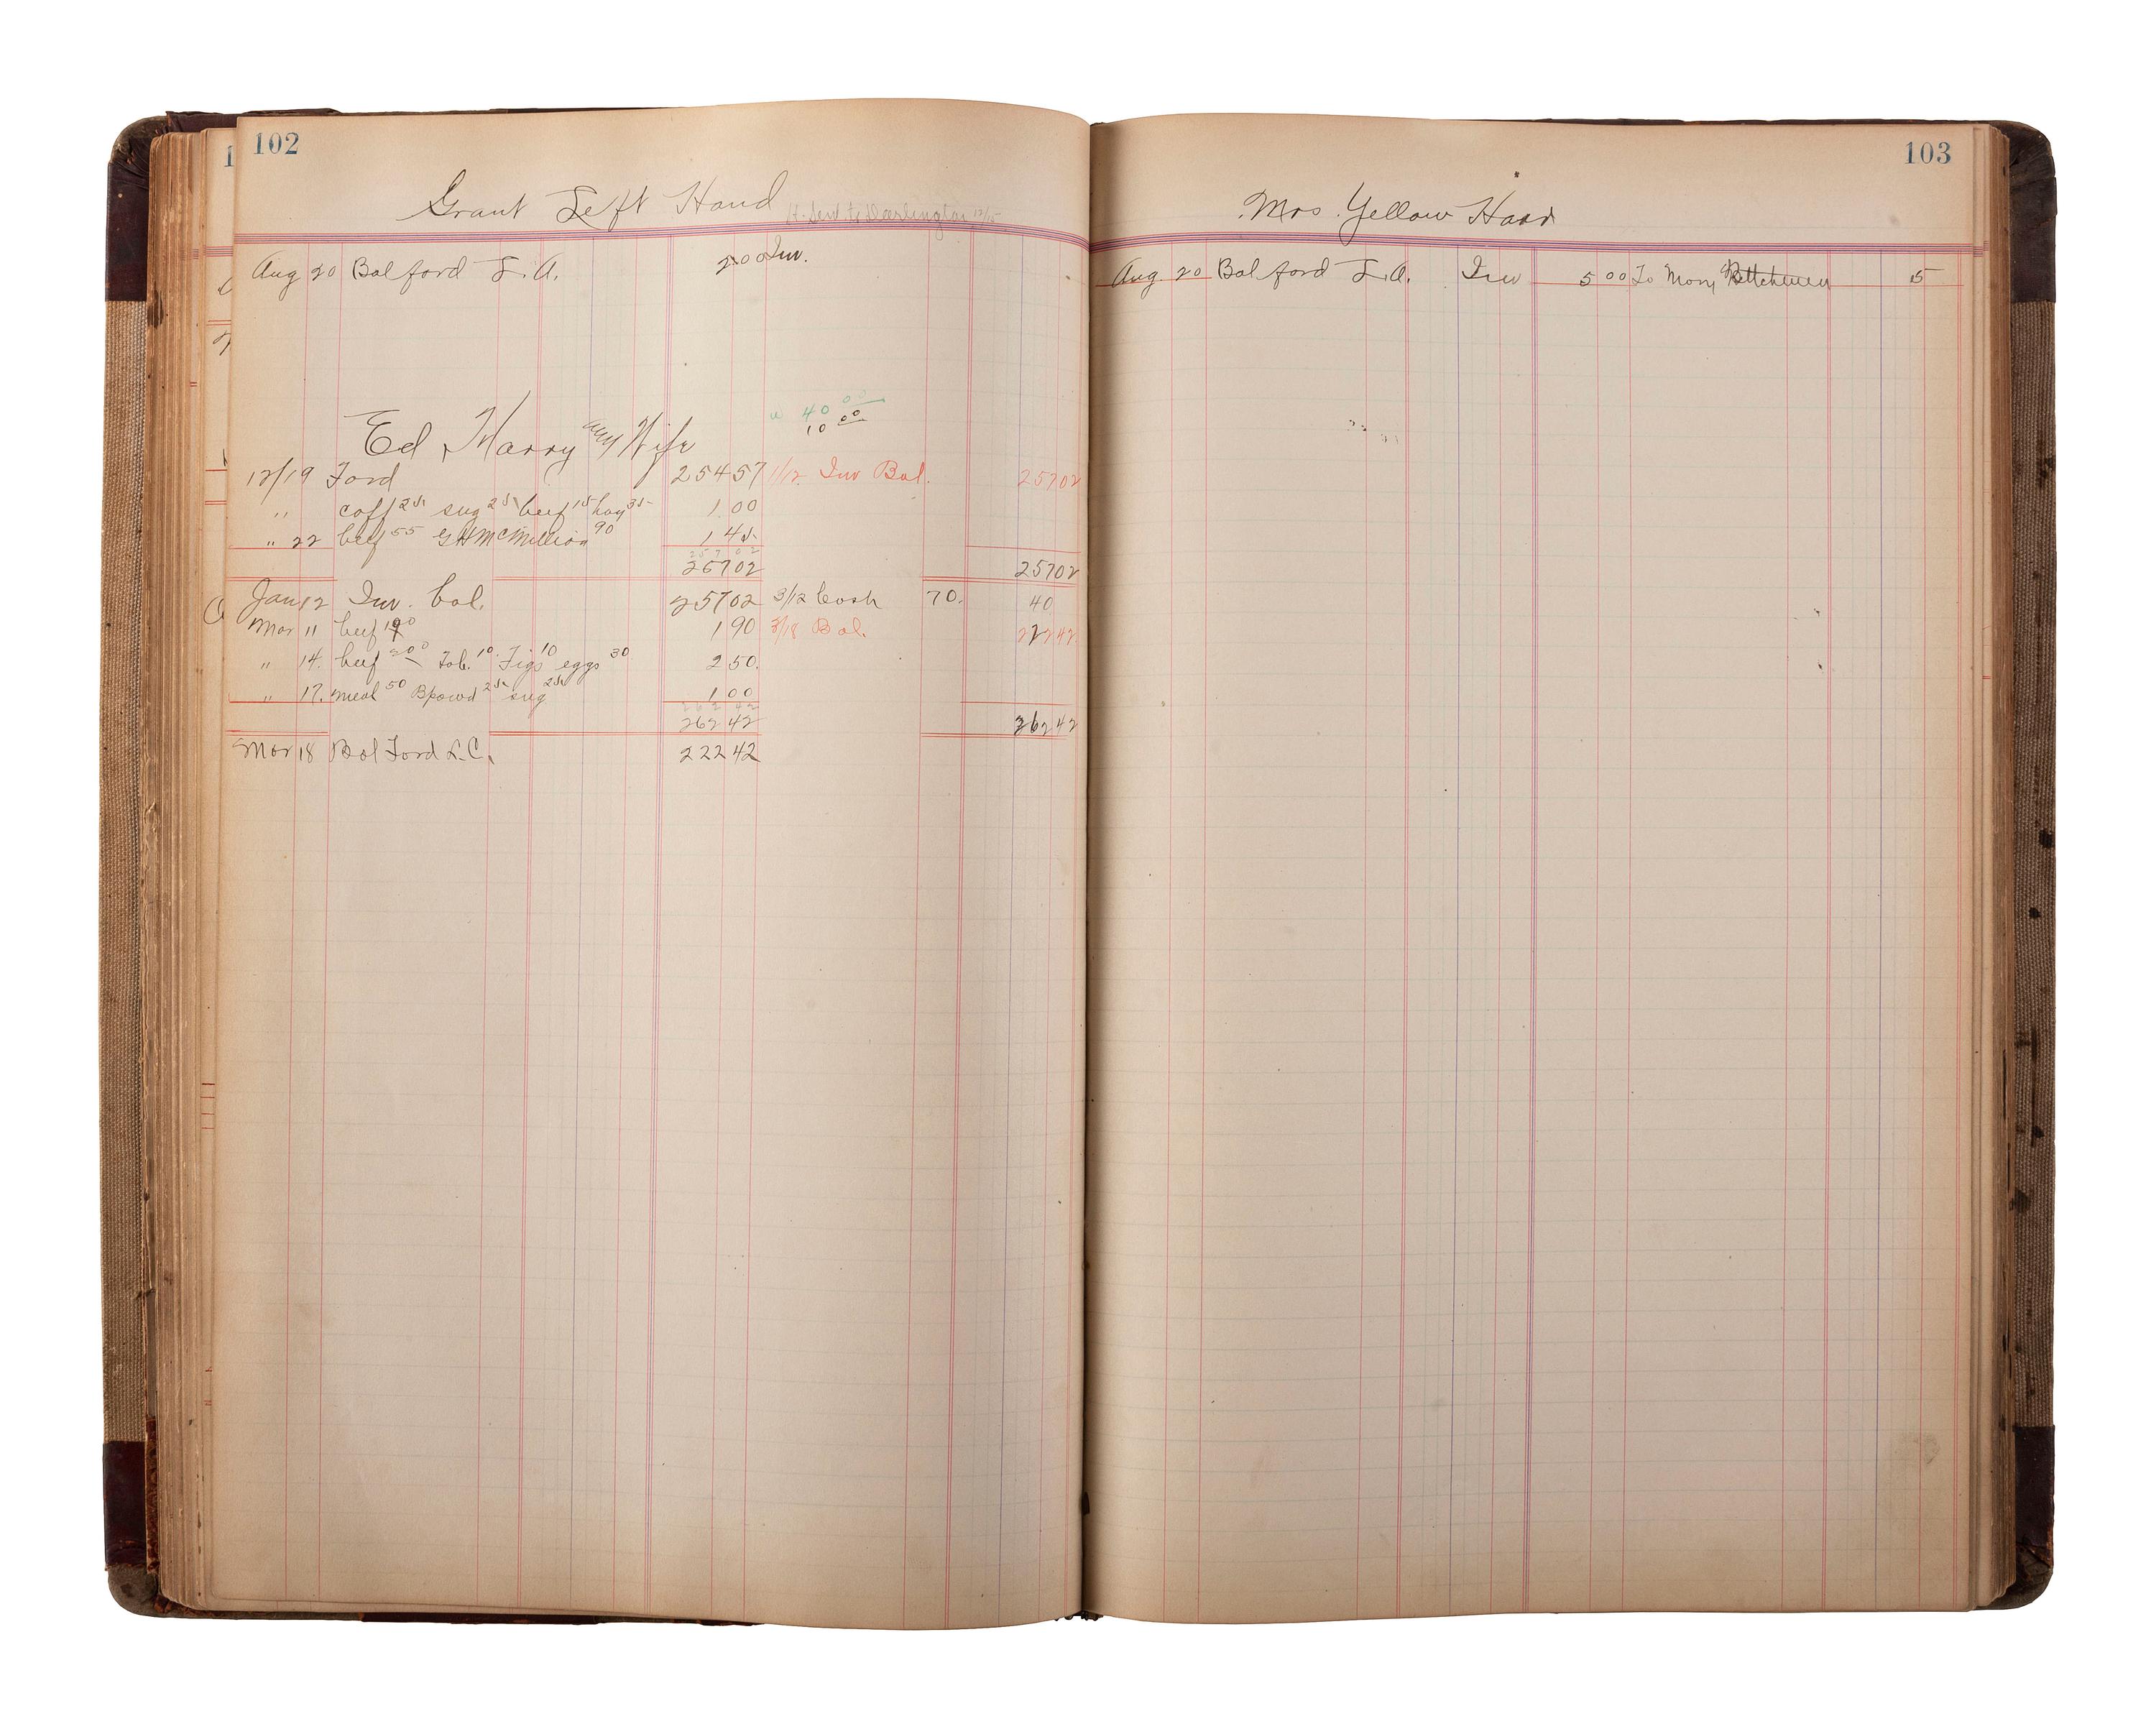 102
Grant Left Hand
Aug 20 Bal ford L. A. 2 00 Inv.
w 40 00
10 00
Ed Harry and Wife
12/19 Ford 254 57 1/12 Inv Bal. 257 02
" coff 25 sug 25 beef 15 hay 35 1 00
" 22 beef 55 G H McMillion 90 1 45
257 02
257 02 257 02
Jan 12 Inv. bal. 257 02 3/12 Cash 70. 40
Mar 11 beef 190 1 90 3/18 Bal. 222 42
" 14. beef 200 Tob. 10 Figs 10 eggs 30 2 50.
" 17. meal 50 Bpowd 25 sug 25 1 00
262 42
262 42 262 42
Mar 18 Bal Ford L. C. 222 42
103
Mrs. Yellow Hair
Aug. 20 Bal ford L. A. Inv 5 00 To 5